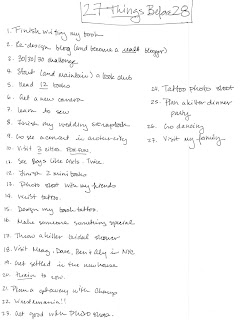 27 Things Before 28
1. Finish writing my book
2. Re-design blog (and become a better blogger)
3. 30/30/30 challenge
4. Start (and maintain) a book club
5. Read 12 books
6. Get a new camera
7. Learn to sew
8. Finish my wedding scrapbook
9. Go see a concert in another city
10. Visit 3 cities FOR FUN.
11. See Boys Like Girls. Twice.
12. Finish 2 mini books
13. Photo shoot with my friends
14. Wrist tattoo.
15. Design my back tattoo.
16. Make someone something special
17. Throw a killer bridal shower
18. Visit Meag, Dave, Ben & Aly in NYC
19. Get settled in the new house
20. Learn to row.
21. Plan a getaway with
22. Weedsmania!!
23. Get good with Photoshop.
24. Tattoo photo shoot
25. Plan a killer dinner
party
26. Go dancing
27. Visit my family